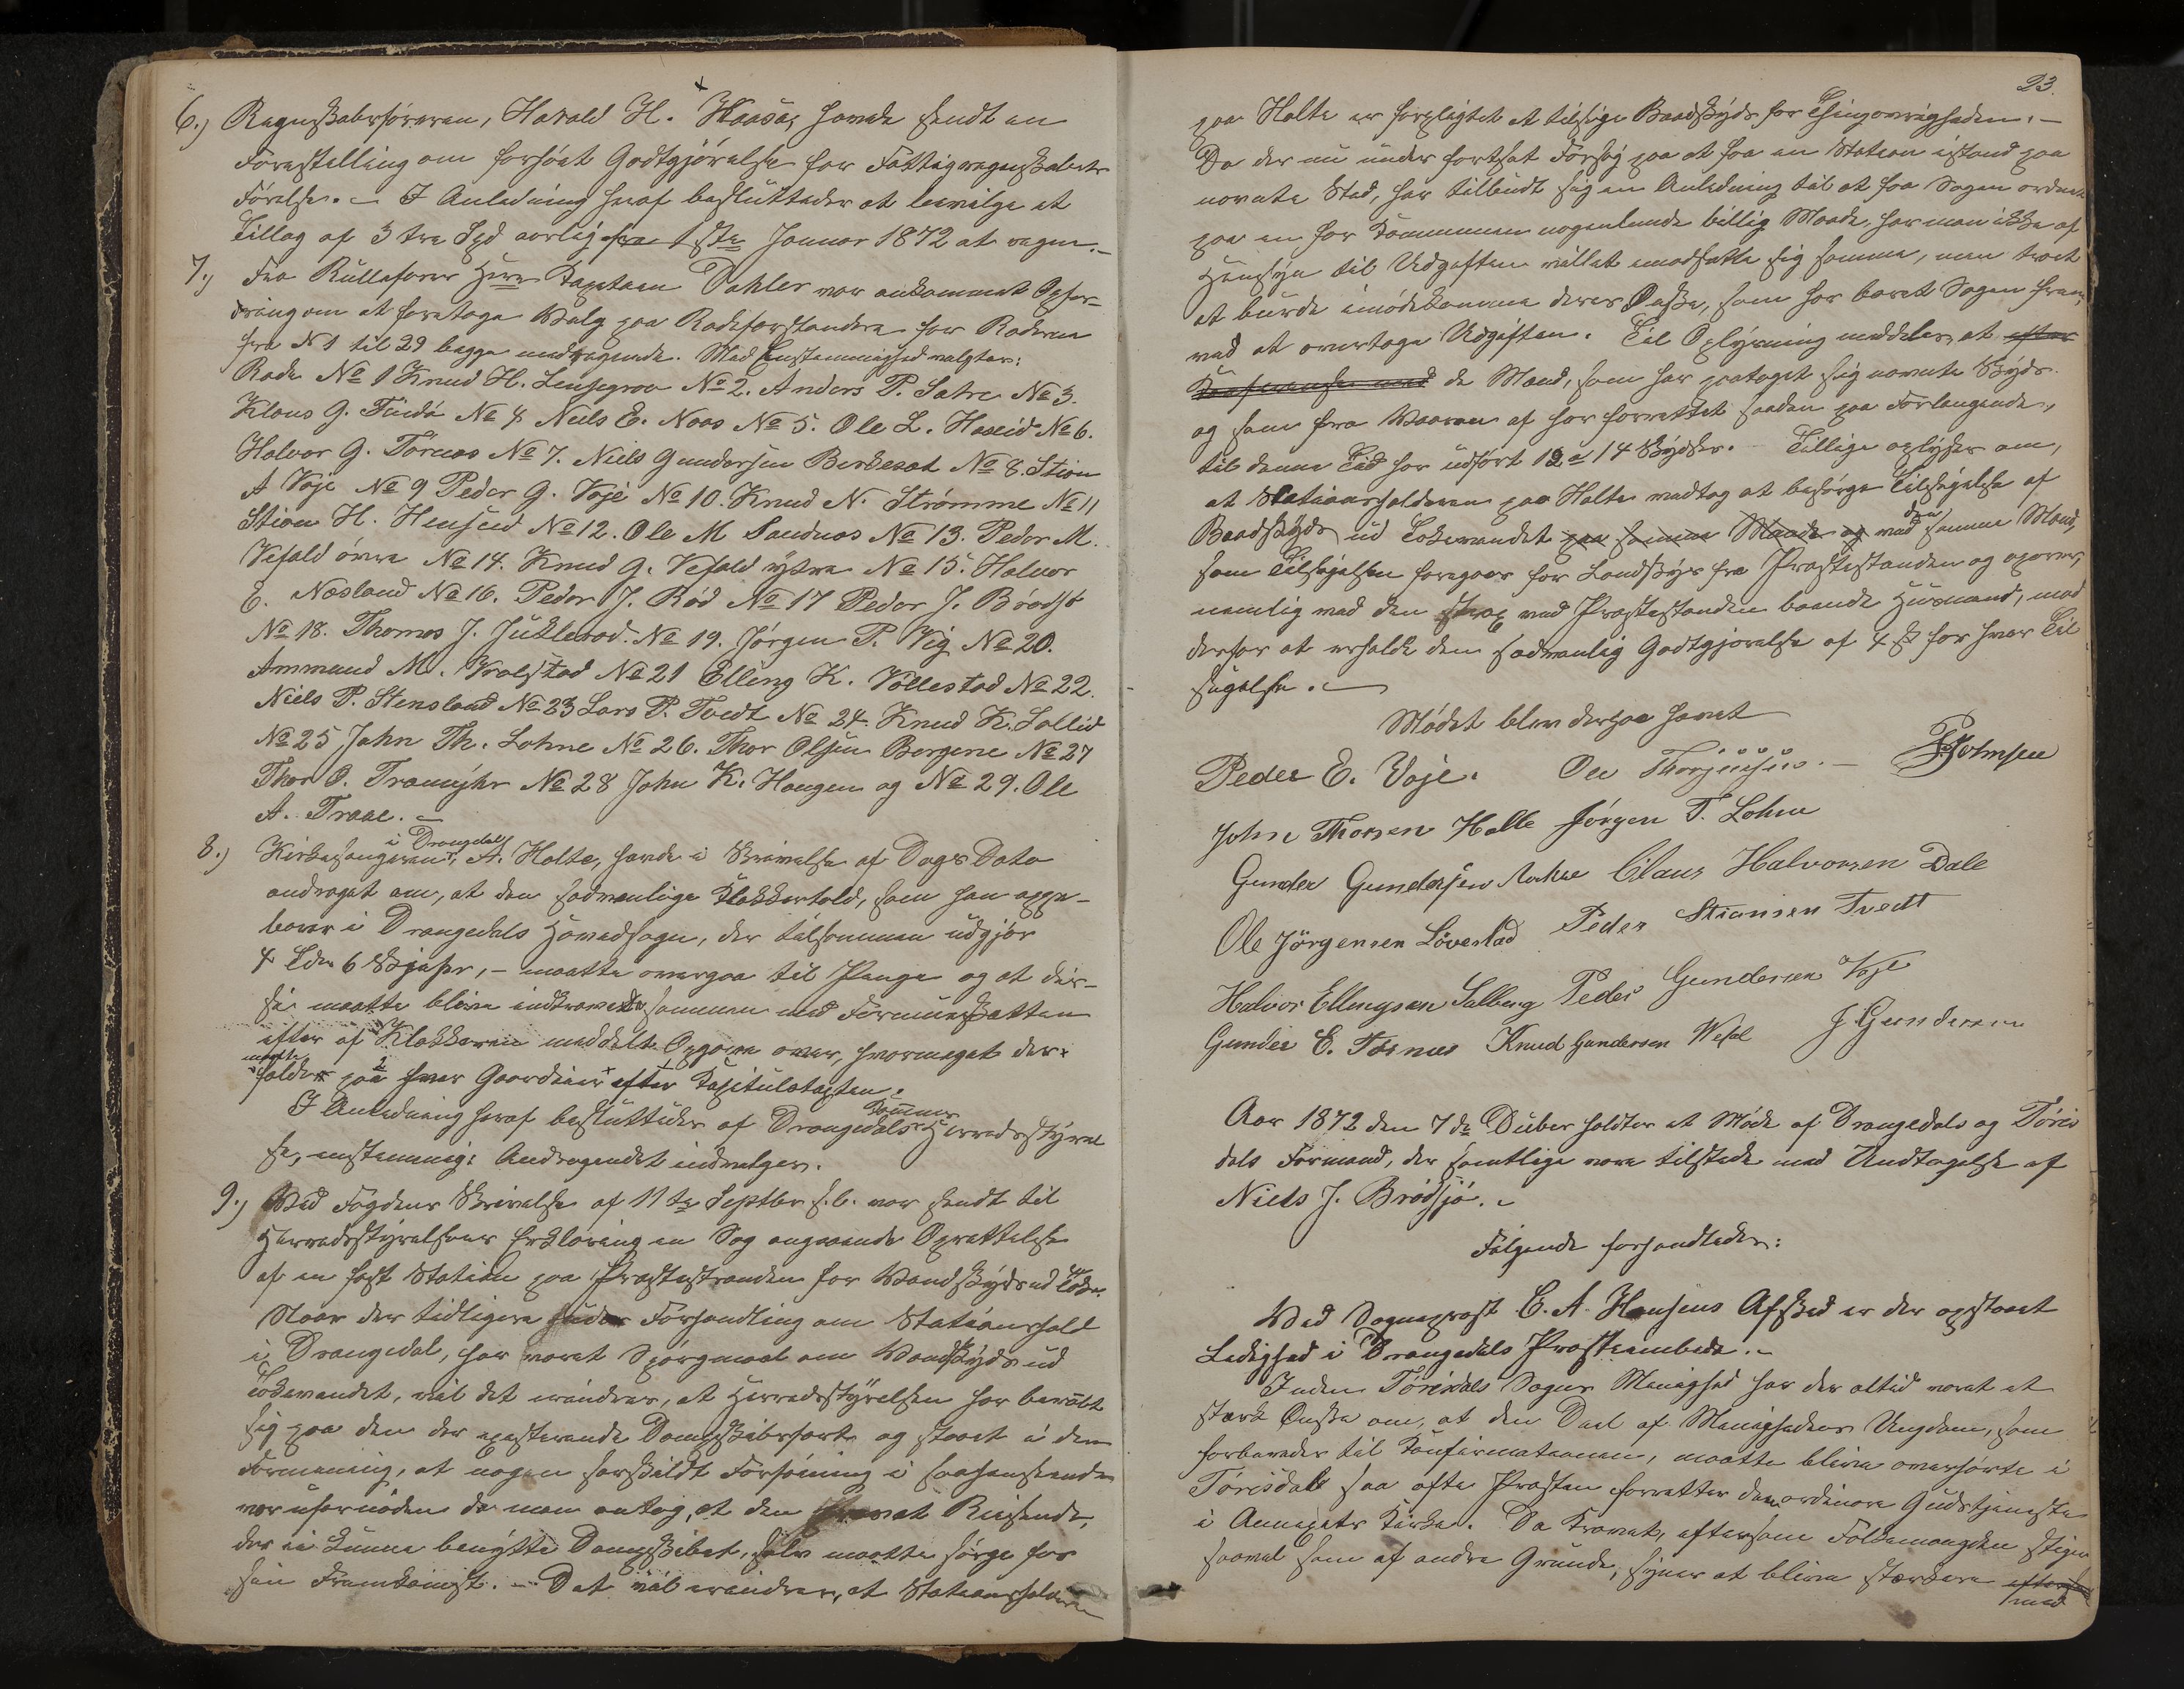 6.) Regnskabsføreren, Harald H. Haasås havde sendt en
Forestilling om forhøiet Godtgjørelse for Fattigregnskabets
Førelse. – I Anledning heraf besluttedes at bevilge et
Tillæg af 3 tre Spd aarlig fra 1ste Januar 1872 at regne. –
7.) Fra Rulleforer Herr Kaptain Dahler var ankommet Opfor-
dring om at foretage Valg paa Rodeforstandere for Roderne
fra N 1 til 29 begge medregnede. Med Enstemmighed valgtes:
Rode No 1 Knud H. Lensegrav No 2. Anders P. Sætre No 3.
Klaus G. Fuidø No 4 Neils E. Naas No 5. Ole L. Haseid No 6.
Halvor G. Tørnæs No 7. Niels Gundersen Berkesæt No 8. Stian
A Voje No 9 Peder G. Voje No 10. Knud N. Strømme No 11
Stian H. Henseid No 12. Ole M Sandnæs No 13. Peder M.
Vefald øvre No 14. Knud G. Vefald ytre No 15. Halvor
E. Næsland No 16. Peder J. Rød No 17 Peder J. Brødsjø
No 18. Thomas J. Juklerød. No 19. Jørgen P. Vig No 20.
Ammund M. Kralstad No 21 Elling K. Vøllestad No 22.
Niels P. Stensland No 23 Lars P. Tvedt No 24. Knud K. Sollid
No 25 John Th. Lohne No 26. Thor Olsen Bergene No 27
Thor O. Tramyhr No 28 John K. Haugen og No 29. Ole
A. Traae. –
8.) Kirkesangeren i Drangedal, A. Holte, havde i Skrivelse af Dags Dato
andraget om, at den sædvanlige Klokkertold, som han oppe-
bærer i Drangedals Hovedsogn, der tilsammen udgjør
4 Tdr 6 Skjæpr, – maatte overgaa til Penge og at dis-
se maatte blive indkrævede sammen med Formueskatten
efter af Klokkeren meddelt Opgave over, hvormeget der
maatte falde paa hver Gaardbrugr efter Kapitulstaxten.
I Anledning heraf besluttedes af Drangedals Sogns Herredsstyrel
se, enstemmig: Andragendet indvilges.
9.) Ved Fogdens Skrivelse af 11te Septbr f. A. var sendt til
Herredsstyrelsens Erklæring en Sag angaaende Oprettelse
af en fast Station paa Præstestranden for Vandskyds ud Toke.
Naar der tidligere under Forhandling om Stationshold
i Drangedal, har været Spørgsmaal om Vandskyds ud
Tokevandet, vil det erindres, at Herredsstyrelsen har beraabt
sig paa den der existerende Dampskibsfart og staaet i den
Formening, at nogen særskildt Forføining i saahenseende
var ufornøden da man antog, at den privat Reisende,
der ei kunne benytte Dampskibet, selv maatte sørge for
sin Fremkomst. – Det vil erindres, at Stationsholderen
23.
paa Holte er forpligtet at tilsige Baadskyds for Thingøvrigheden. –
Da der nu under fortsat Forsøg paa at faa en Station istand paa
nævnte Sted, har tilbudt sig en Anledning til at faa Sagen ordnet
paa en for Kommunen nogenlunde billig Maade, har man ikke af
Hensyn til Udgiften villet modsætte sig samme, men troet
at burde imødekomme deres Ønske, som har baaret Sagen frem,
ved at overtage Udgiften. Til Oplysning meddeles at efter
Konferense med de Mænd, som har paataget sig nævnte Skyds
og som fra Vaaren af har forrettet saadan paa Forlangende,
til denne Tid har udført 12 a 14 Skydser. – Tillige oplyses om,
at Stationsholderen paa Holte vedtog at besørge Tilsigelse af
Baadskyds ud Tokevandet paa samme Maade og ved den samme Mand,
som Tilsigelsen foregaar for Landskyds fra Præstestranden og opover,
nemlig ved den strax ved Præstestranden boende Husmand, mod
derfor at erholde den sædvanlig Godtgjørelse af 4 s for hver Til
sigelse. –
Mødet blev derpaa hævet
Peder E. Voje. Ole Thorjussen. – P. Holmsen
John Thorsen Holte Jörgen T. Lohne
Gunder Gundersen Aakre Claus Halvorsen Dale
Ole Jörgensen Løvestad Peder Stiansen Tvedt
Halvor Ellingsen Solberg Peder Gundersen Voje
Gunder E. Tørnes Knud Gundersen Wefal J Gundersen
Aar 1872 den 7de Debr holdtes et Møde af Drangedals og Tøris
dals Formænd, der samtlige vare tilstede med Undtagelse af
Niels J. Brødsjø. –
Følgende forhandledes:
Ved Sogneprest C. A. Hansens Afsked er der opstaaet
Ledighed i Drangedals Præsteembede. –
Inden Tørisdals Sogns Menighed har der altid været et
stærk Ønske om, at den Deel af Menighedens Ungdom, som
forberedes til Konfirmationen, maatte blive overhørte i
Tørisdal saa ofte Præsten forretter den ordinære Gudstjeneste
i Annexets Kirke. Da Kravet, eftersom Folkemængden stiger
saavel som af andre Grunde, synes at blive stærkere eftersom
med